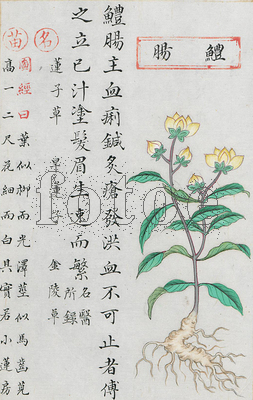 鱧腸
鱧腸主血痢鍼灸瘡發洪血不可止者傅
之立已汁塗髮眉生速而繁名醫所錄
名
蓮子草 旱蓮子 金陵草
苗
圖經曰葉似柳而光澤莖似馬齒莧
高一二尺花細而白其實若小蓮房
foto